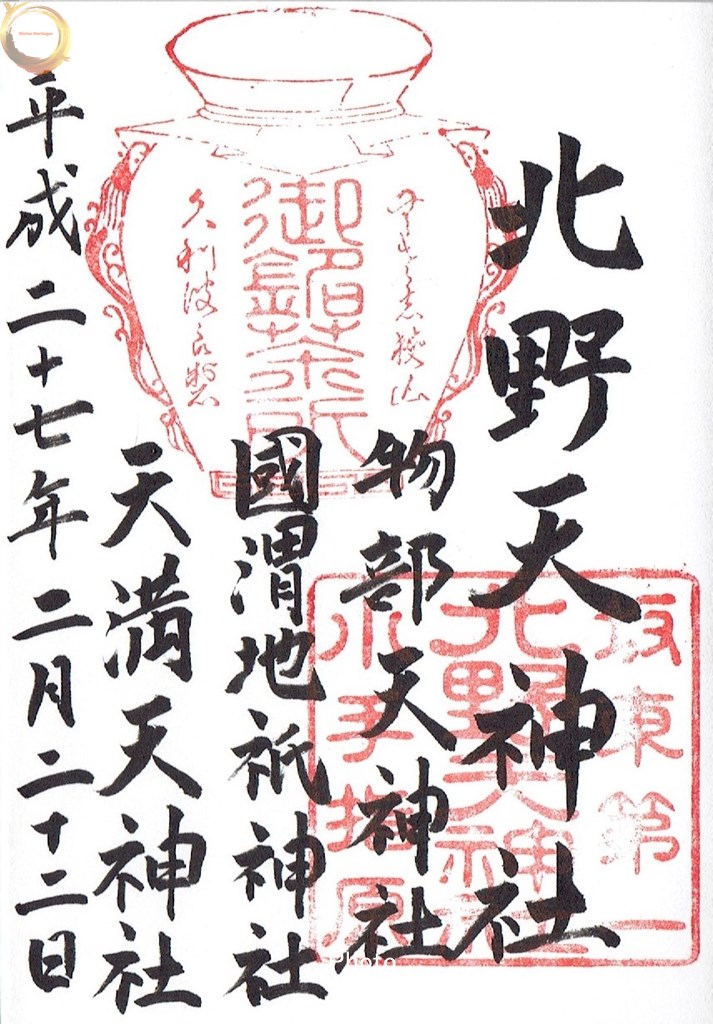 北野天神社
物部天神社
國渭地祇神社
天満天神社
平成二十七年二月二十二日
坂東第一
北野天神社
御銘茶所
久利波良磐
Photo